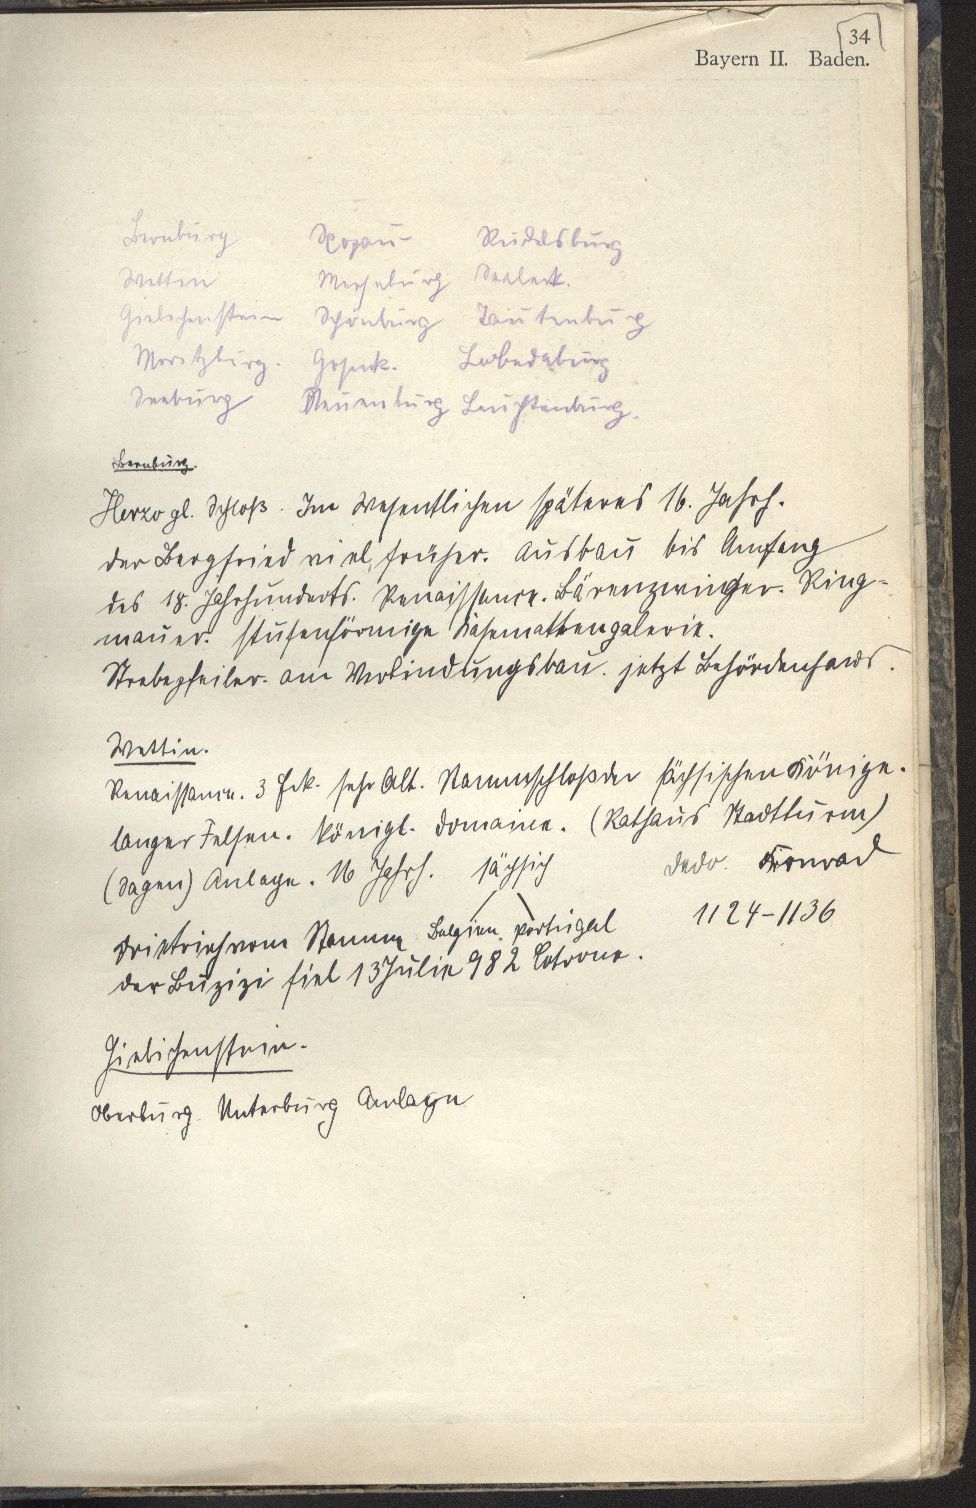 34
Bayern II. Baden.
Bernburg Skopau Rudelsburg
Wettin Merseburg Saaleck.
Giebichenstein Schönburg Tautenburg
Moritzburg. Goseck. Lobedaburg
Seeburg Neuenburg Leuchtenburg.
Bernburg.
Herzogl. Schloß. Im Wesentlichen späteres 16. Jahrh.
der Bergfried viel früher. Ausbau bis Anfang
des 18. Jahrhunderts. Renaissance. Bärenzwinger. Ring-
mauer. stufenförmige Kasemattengalerie.
Strebepfeiler am Verbindungsbau. jetzt Behördenhaus.
Wettin.
Renaissance. 3 Eck. sehr Alt. Stammschloß der sächsischen Könige.
langer Felsen. Königl. Domaine. (Rathaus Stadtturm)
(Sagen) Anlage. 16 Jahrh. sächsich Dedo. Konrad
Belgien. Portugal 1124-1136
Dietrich vom Stamme
der Buzizi fiel 13 Julie 982 Cotrone.
Giebichenstein.
Oberburg Unterburg Anlage